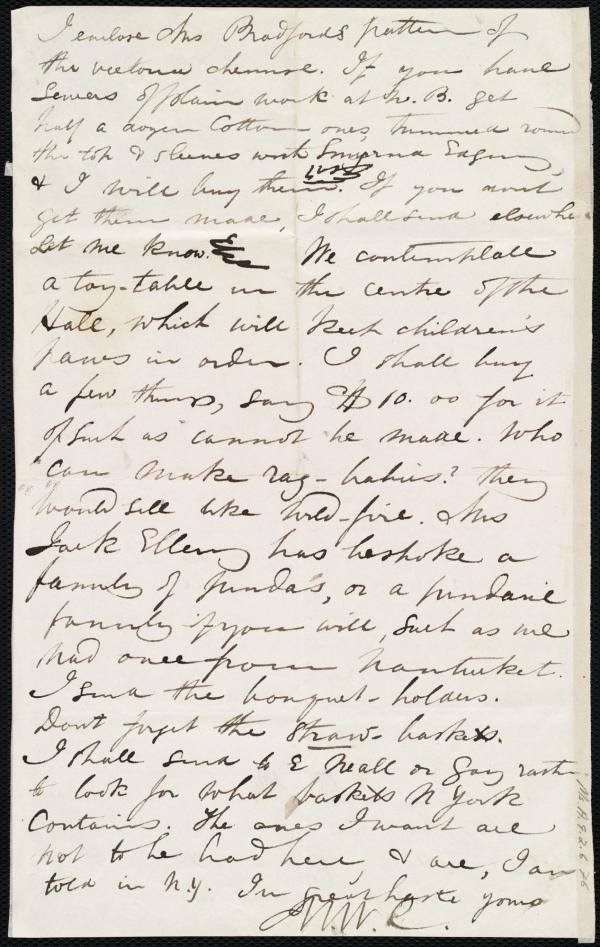 I enclose Mrs Bradford's pattern of
the victoria chemise. If you have
Sewers of plain work at N. B. get
half a dozen Cotton ones, trimmed round
the top & sleeves with Smyrna Edging,
& I will buy them. If you don't
get them made, I shall send elsewhe
Let me know. We contemplate
a toy-table in the centre of the
Hall, which will keep children's
paws in order. I shall buy
a few things, say $10.00 for it
of such as cannot be made. Who
can make rag-babies? they
would sell like wild-fire. Mrs
Jack Ellery has bespoke a
family of , or a
family if you will, such as we
had once from Nantucket.
I send the bouquet-holders.
Dont forget the straw-baskets.
I shall send to E Neall or Gay
to look for what baskets N York
Contains. The ones I want are
not to be had here, & are, I am
told in N.Y. In great haste yours
M. W. C.